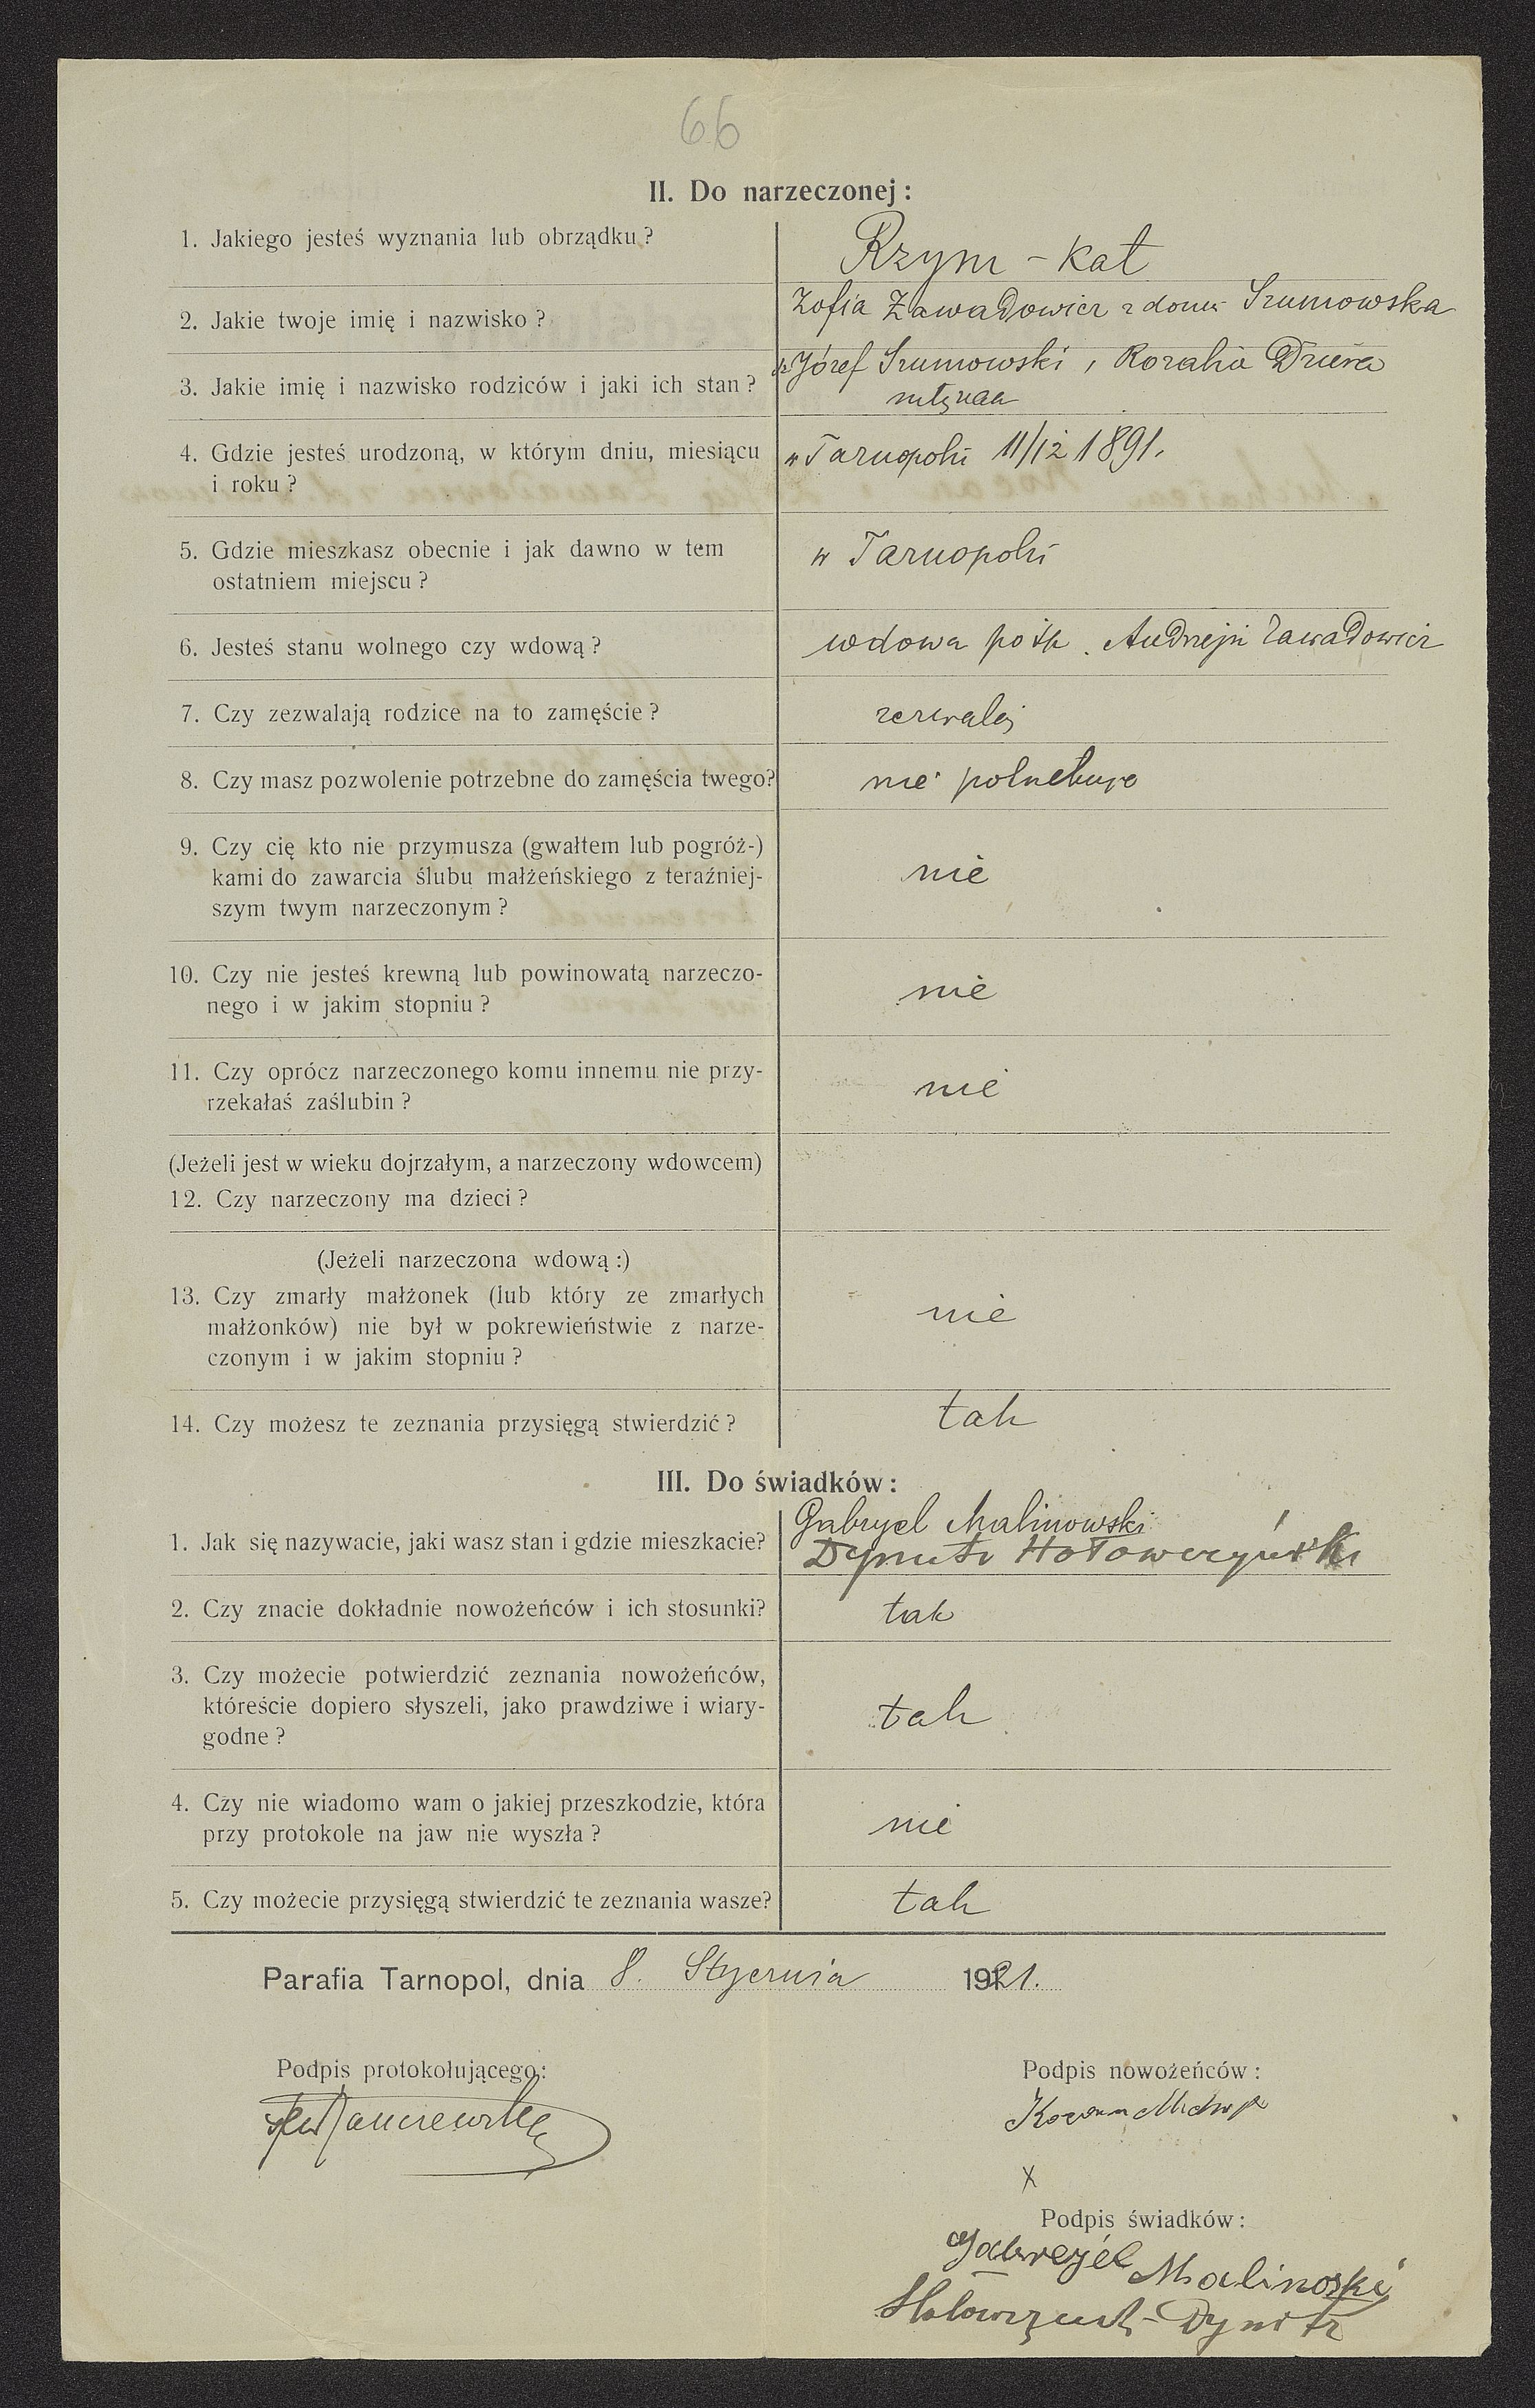 66
II. Do narzeczonej:
1. Jakiego jesteś wyznania lub obrządku?
Rzym - kat
2. Jakie twoje imię i nazwisko?
Zofia Zawadowicz z domu Szumowska
3. Jakie imię i nazwisko rodziców i jaki ich stan?
Józef Szumowski i Rozalia
4. Gdzie jesteś urodzoną, w którym dniu, miesiącu
i roku?
w Tarnopolu 11/12 1891.
5. Gdzie mieszkasz obecnie i jak dawno w tem
ostatniem miejscu?
w Tarnopolu
6. Jesteś stanu wolnego czy wdową?
wdowa po śp. Andrzeju Zawadowicz
7. Czy zezwalają rodzice na to zamęście?
8. Czy masz pozwolenie potrzebne do zamęścia twego?
nie potrzebuje
9. Czy cię kto nie przymusza (gwałtem lub pogróż-)
kami do zawarcia ślubu małżeńskiego z teraźniej-
szym twym narzeczonym?
nie
10. Czy nie jesteś krewną lub powinowatą narzeczo-
nego i w jakim stopniu?
nie
11. Czy oprócz narzeczonego komu innemu nie przy-
rzekałaś zaślubin?
nie
(Jeżeli jest w wieku dojrzałym, a narzeczony wdowcem)
12. Czy narzeczony ma dzieci?
(Jeżeli narzeczona wdową:)
13. Czy zmarły małżonek (lub który ze zmarłych
małżonków) nie był w pokrewieństwie z narze-
czonym i w jakim stopniu?
nie
14. Czy możesz te zeznania przysięgą stwierdzić?
tak
III. Do świadków:
1. Jak się nazywacie, jaki wasz stan i gdzie mieszkacie?
Gabryel Malinowski
Dymitr Hołowczyński
2. Czy znacie dokładnie nowożeńców i ich stosunki?
tak
3. Czy możecie potwierdzić zeznania nowożeńców,
któreście dopiero słyszeli, jako prawdziwe i wiary-
godne?
tak
4. Czy nie wiadomo wam o jakiej przeszkodzie, która
przy protokole na jaw nie wyszła?
nie
5. Czy możecie przysięgą stwierdzić te zeznania wasze?
tak
Parafia Tarnopol, dnia 8. Stycznia 1921.
Podpis protokołującego:
Podpis nowożeńców:
x
Podpis świadków:
Malinoski
Dymitr